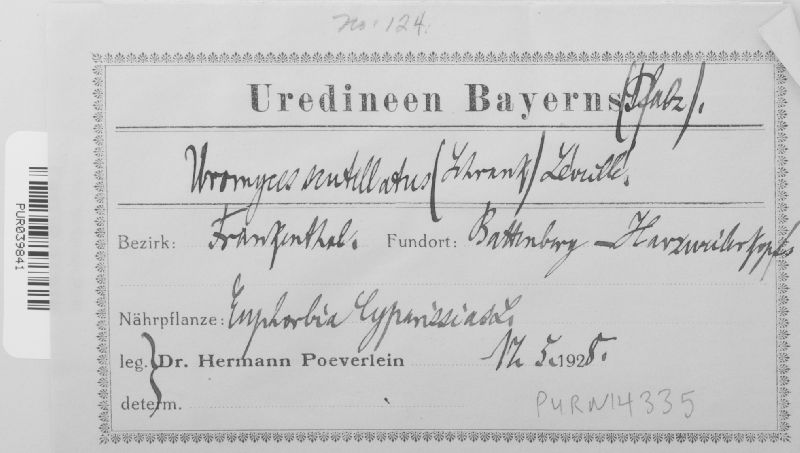 No. 124.
Uredineen Bayerns (Pfalz).
Uromyces scutellatus (Schrank) Léveillé.
Bezirk: Frankenthal. Fundort: Battenberg –
Nährpflanze: Euphorbia Cyparissias L.
leg. Dr. Hermann Poeverlein 5. 1928.
determ.
PURN14335
PUR039841